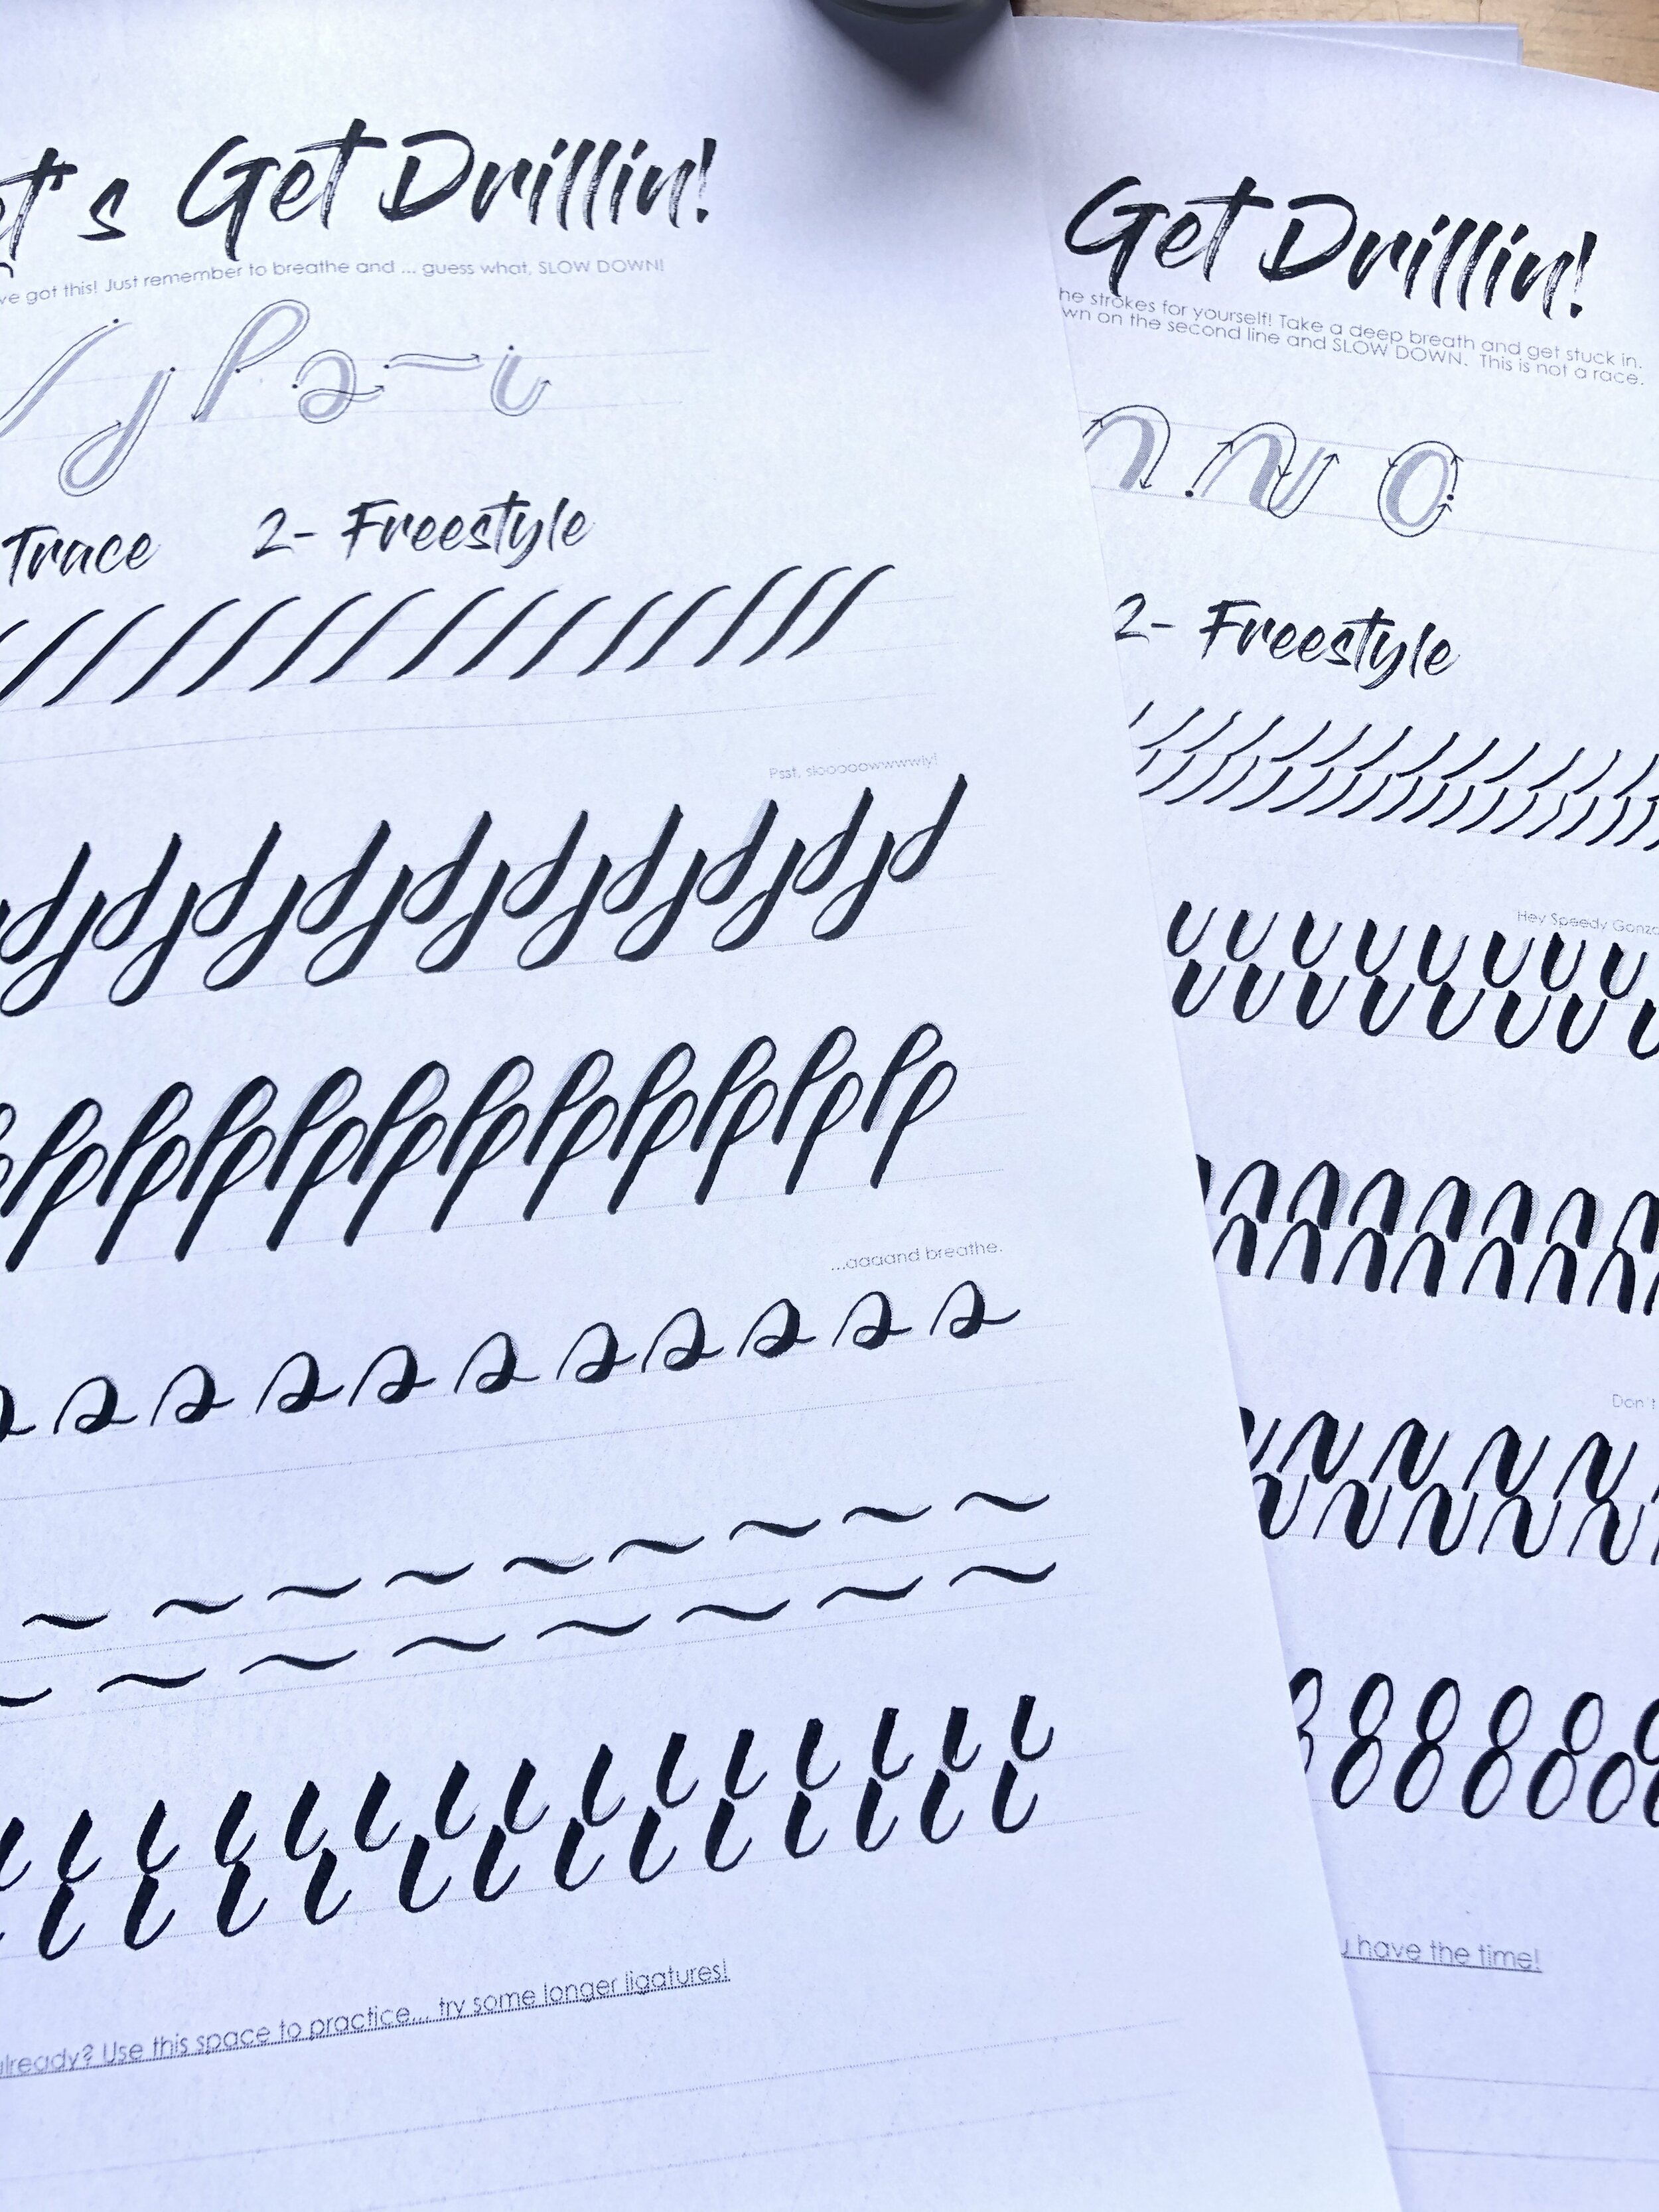 Let's Get Drillin!
've got this! Just remember to breathe and ... guess what, SLOW DOWN!
Trace 2- Freestyle
Psst, slooooowwwwly!
...aaaand breathe.
already? Use this space to practice... try some longer ligatures!
Get Drillin!
he strokes for yourself! Take a deep breath and get stuck in.
wn on the second line and SLOW DOWN. This is not a race.
2- Freestyle
Hey Speedy
Don't
have the time!